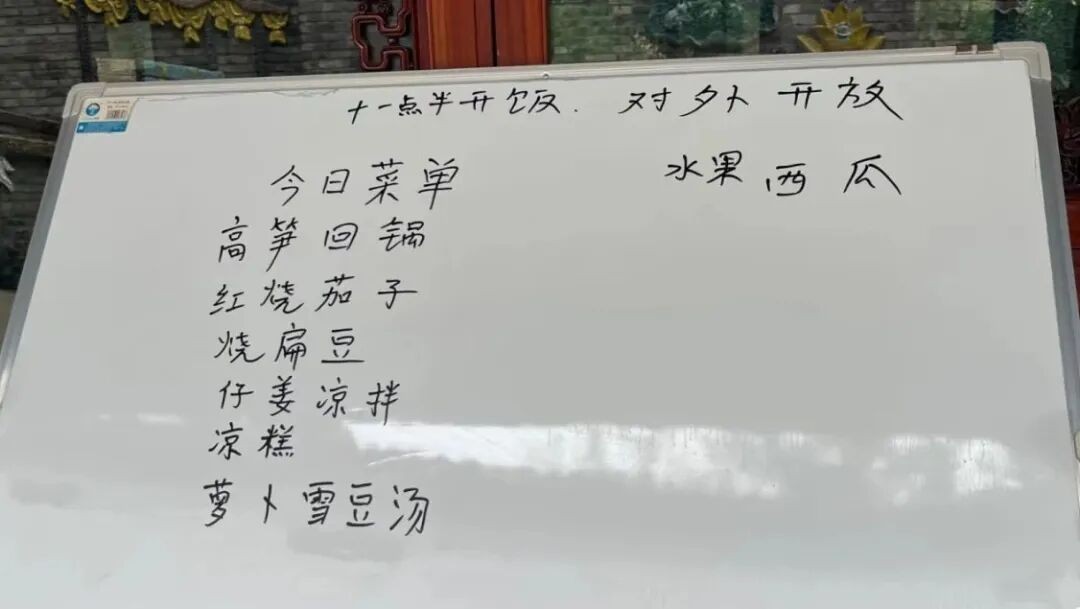 十一点半开饭. 对外开放
今日菜单
水果 西瓜
高笋回锅
红烧茄子
烧扁豆
仔姜凉拌
凉糕
萝卜雪豆汤